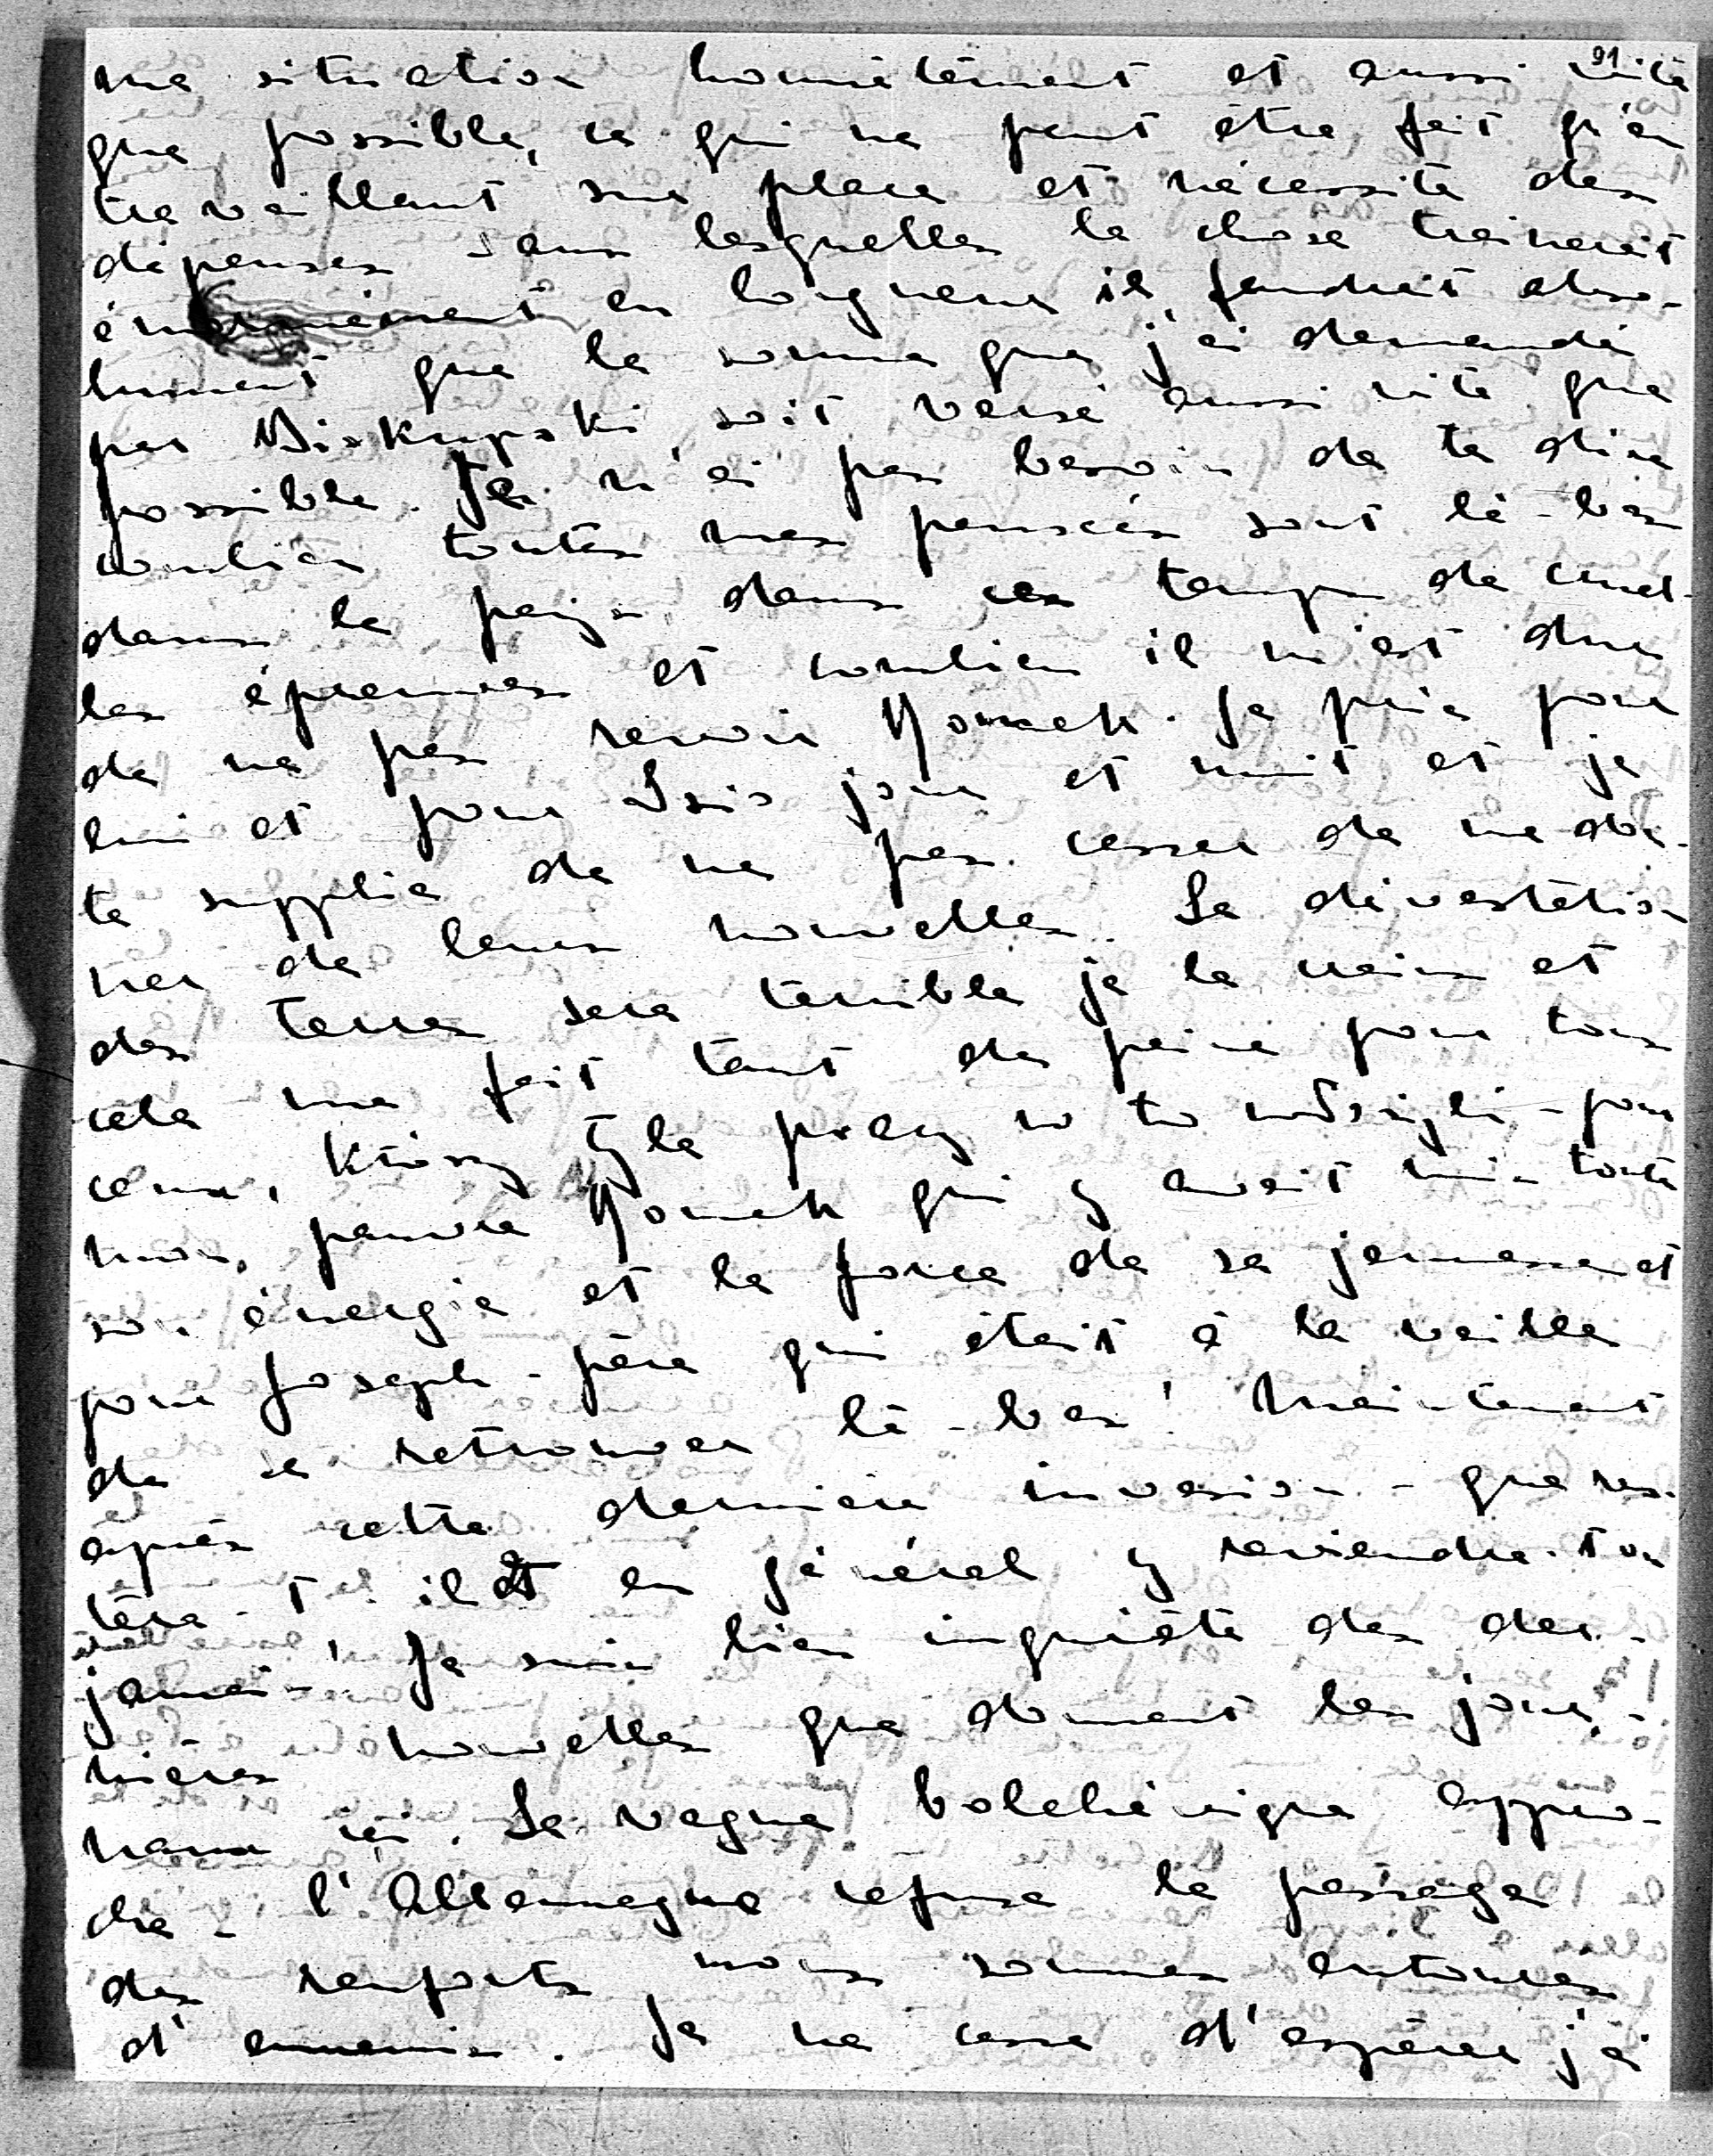 91
ma situation honnêtement et aussi vite
que possible, ce qui ne peut être fait qu'en
travaillant sur place et nécessite des
dépenses sans lesquelles la chose traînerait
énormément en longueur il faudrait abso-
lument que la somme que j'ai demandé
par Biskupski soit versé aussi vite que
possible. Je n'ai pas besoin de te dire
combien toutes mes pensées sont là-bas
dans le pays dans ces temps de cruel-
les épreuves et combien il m'est dur
de ne pas revoir Romek. Je prie pour
lui et pour Isio jour et nuit et je
te supplie de ne pas cesser de me don-
ner de leurs nouvelles. La dévastation
des terres sera terrible je le crains et
cela me fait tant de peine pour tous
ceux, którzy tyle pracy w to włożyli - pour
mon pauvre Romek qui y avait mis toute
son énergie et la force de sa jeunesse et
pour Joseph-père qui était à la veille
de se retrouver là-bas! Maintenant
après cette dernière invasion - que res-
tera-t-il et en général y reviendra-t-on
jamais! Je suis bien inquiète des der-
nières nouvelles que donnent les jour-
naux ici. La vague bolchévique appro-
che - l'Allemagne refuse le passage
des renforts nous sommes entourés
d'ennemis. Je ne cesse d'espérer j'ai